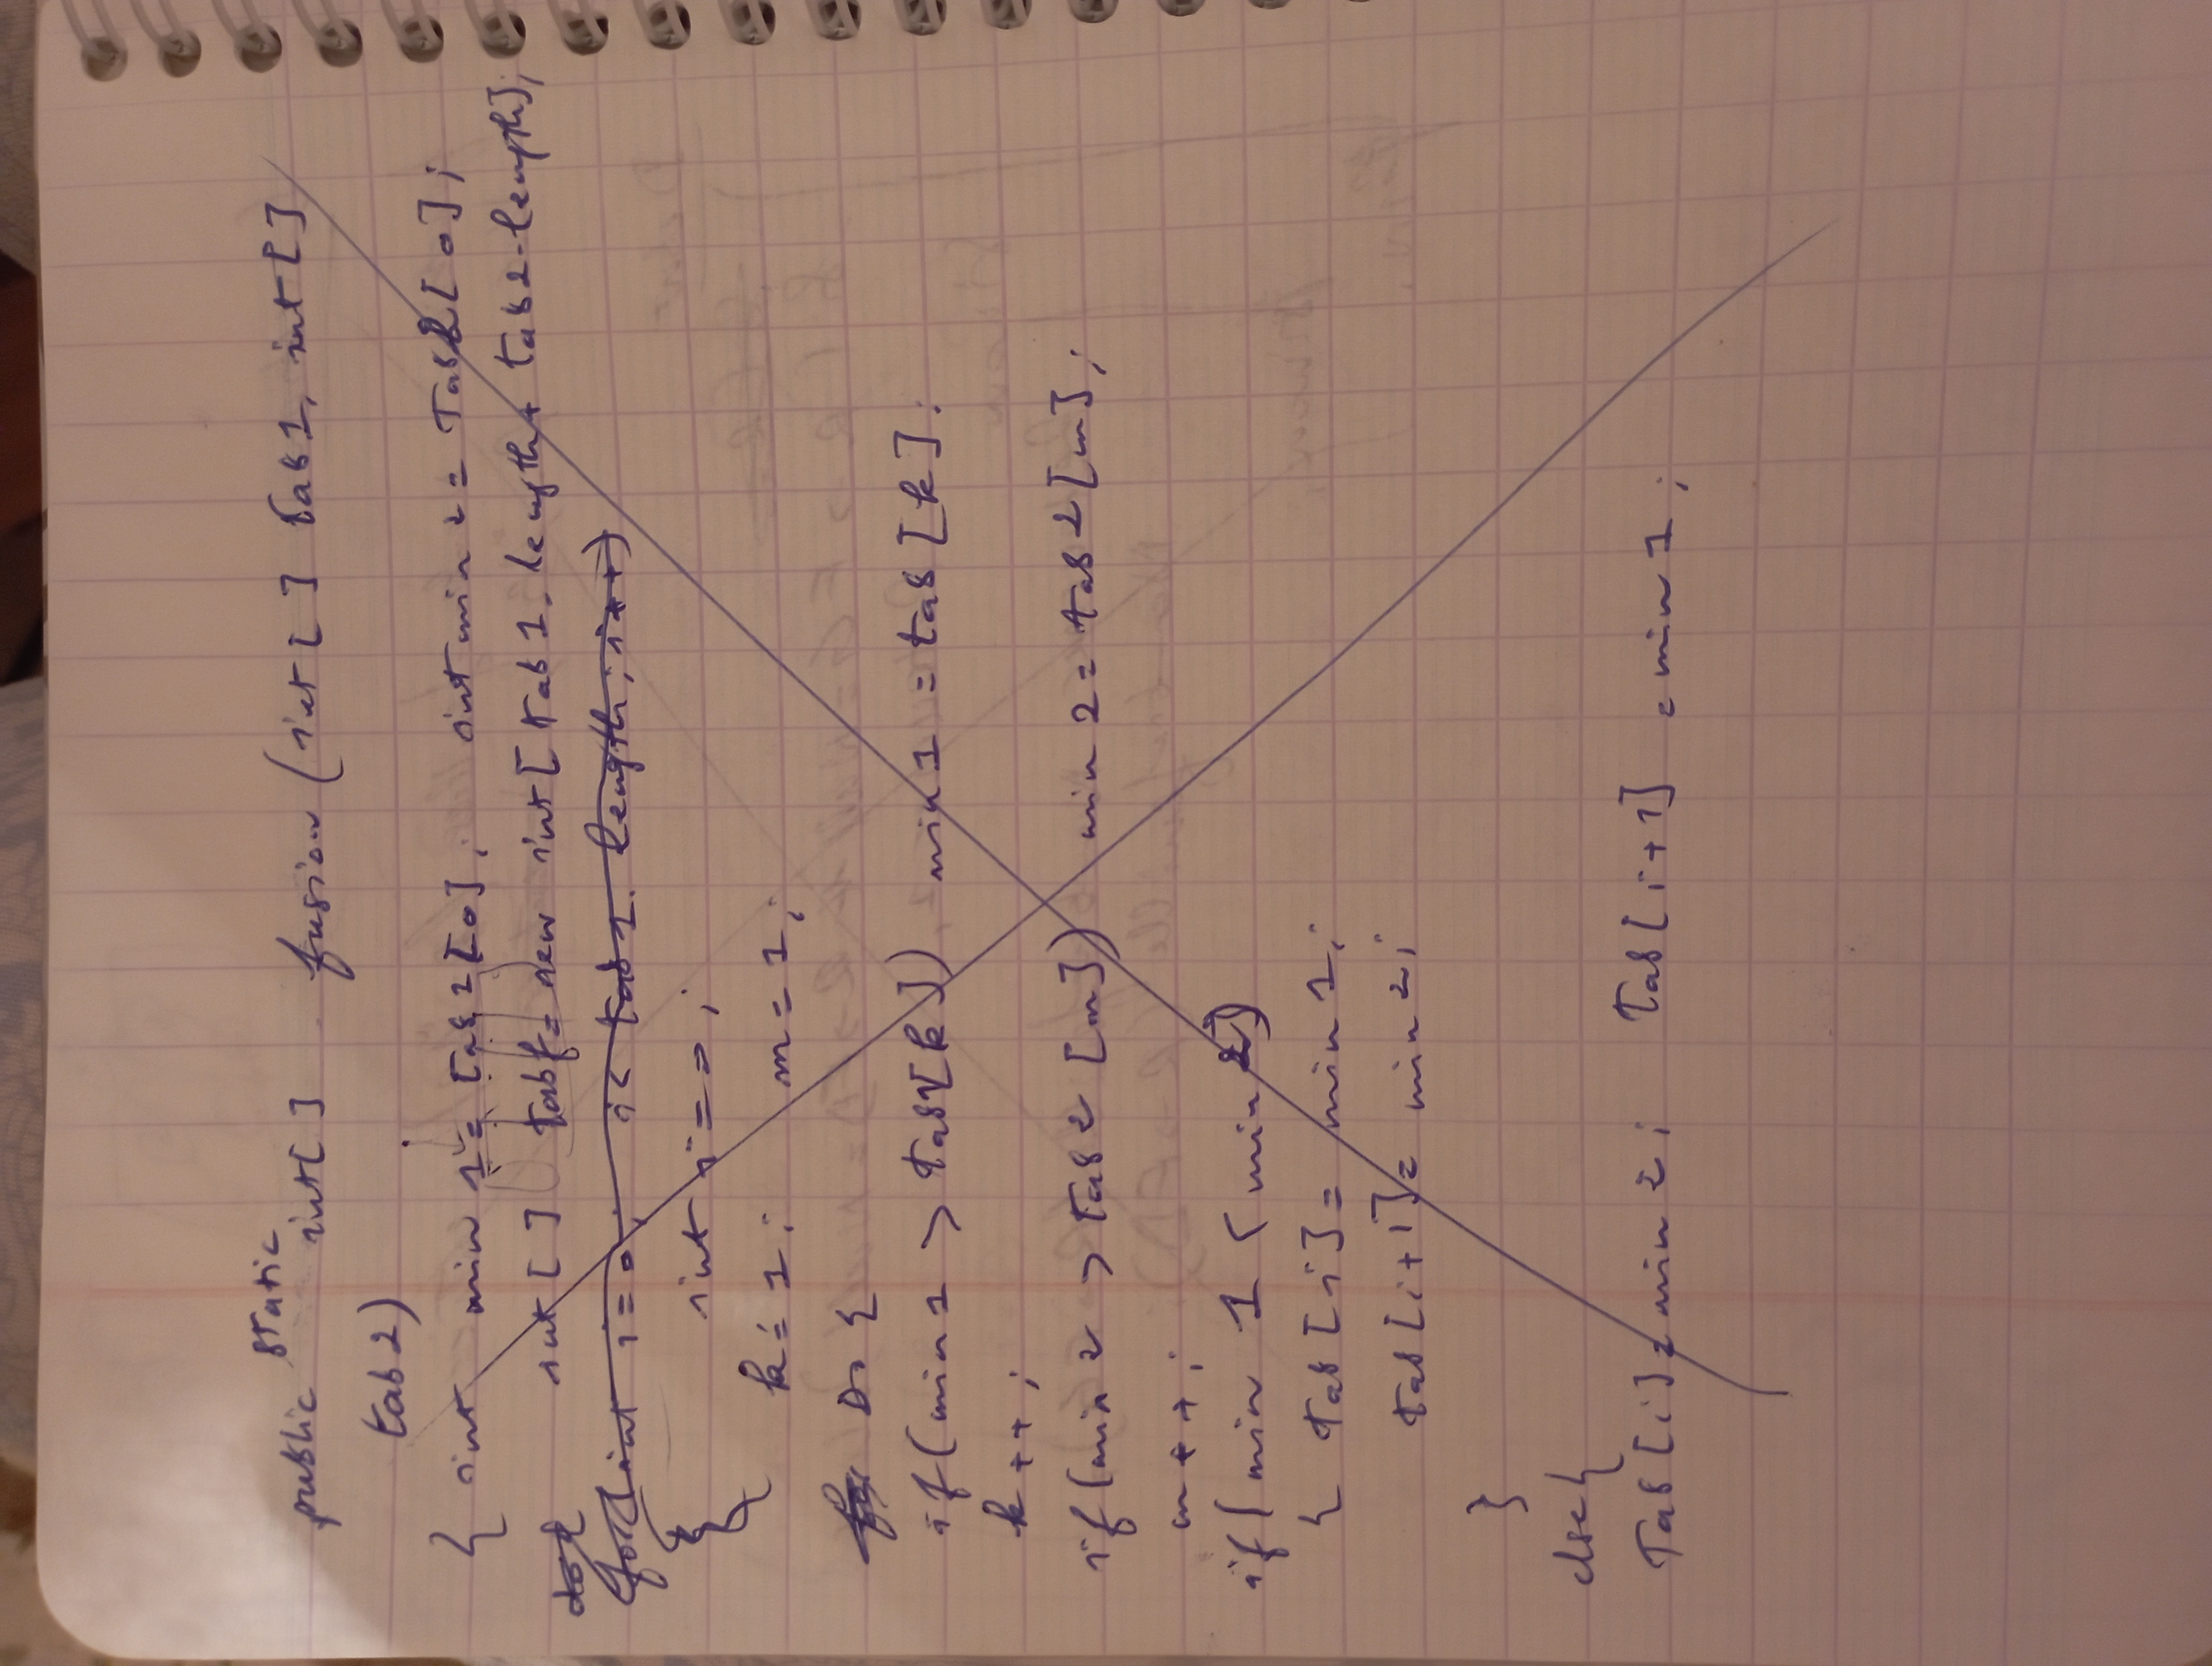 public static int[] fusion (int[] tab1, int[]
tab2)
{ int min 1 = tab2[0]; int min 2 = Tab2[0];
int[] tabf = new int[tab1.length + tab2.length];
for(int i=0; i< tab1.length; i++)
{ int i=0;
k=1; m=1;
for Do {
if(min1 > tab1[k]) min1 = tab[k];
k++;
if(min2 > tab2[m]) min2 = tab2[m];
m++;
if(min 1 < min2)
{ tab[i] = min1;
tab[i+1] = min2;
}
else{
Tab[i]=min2; tab[i+1] =min1;